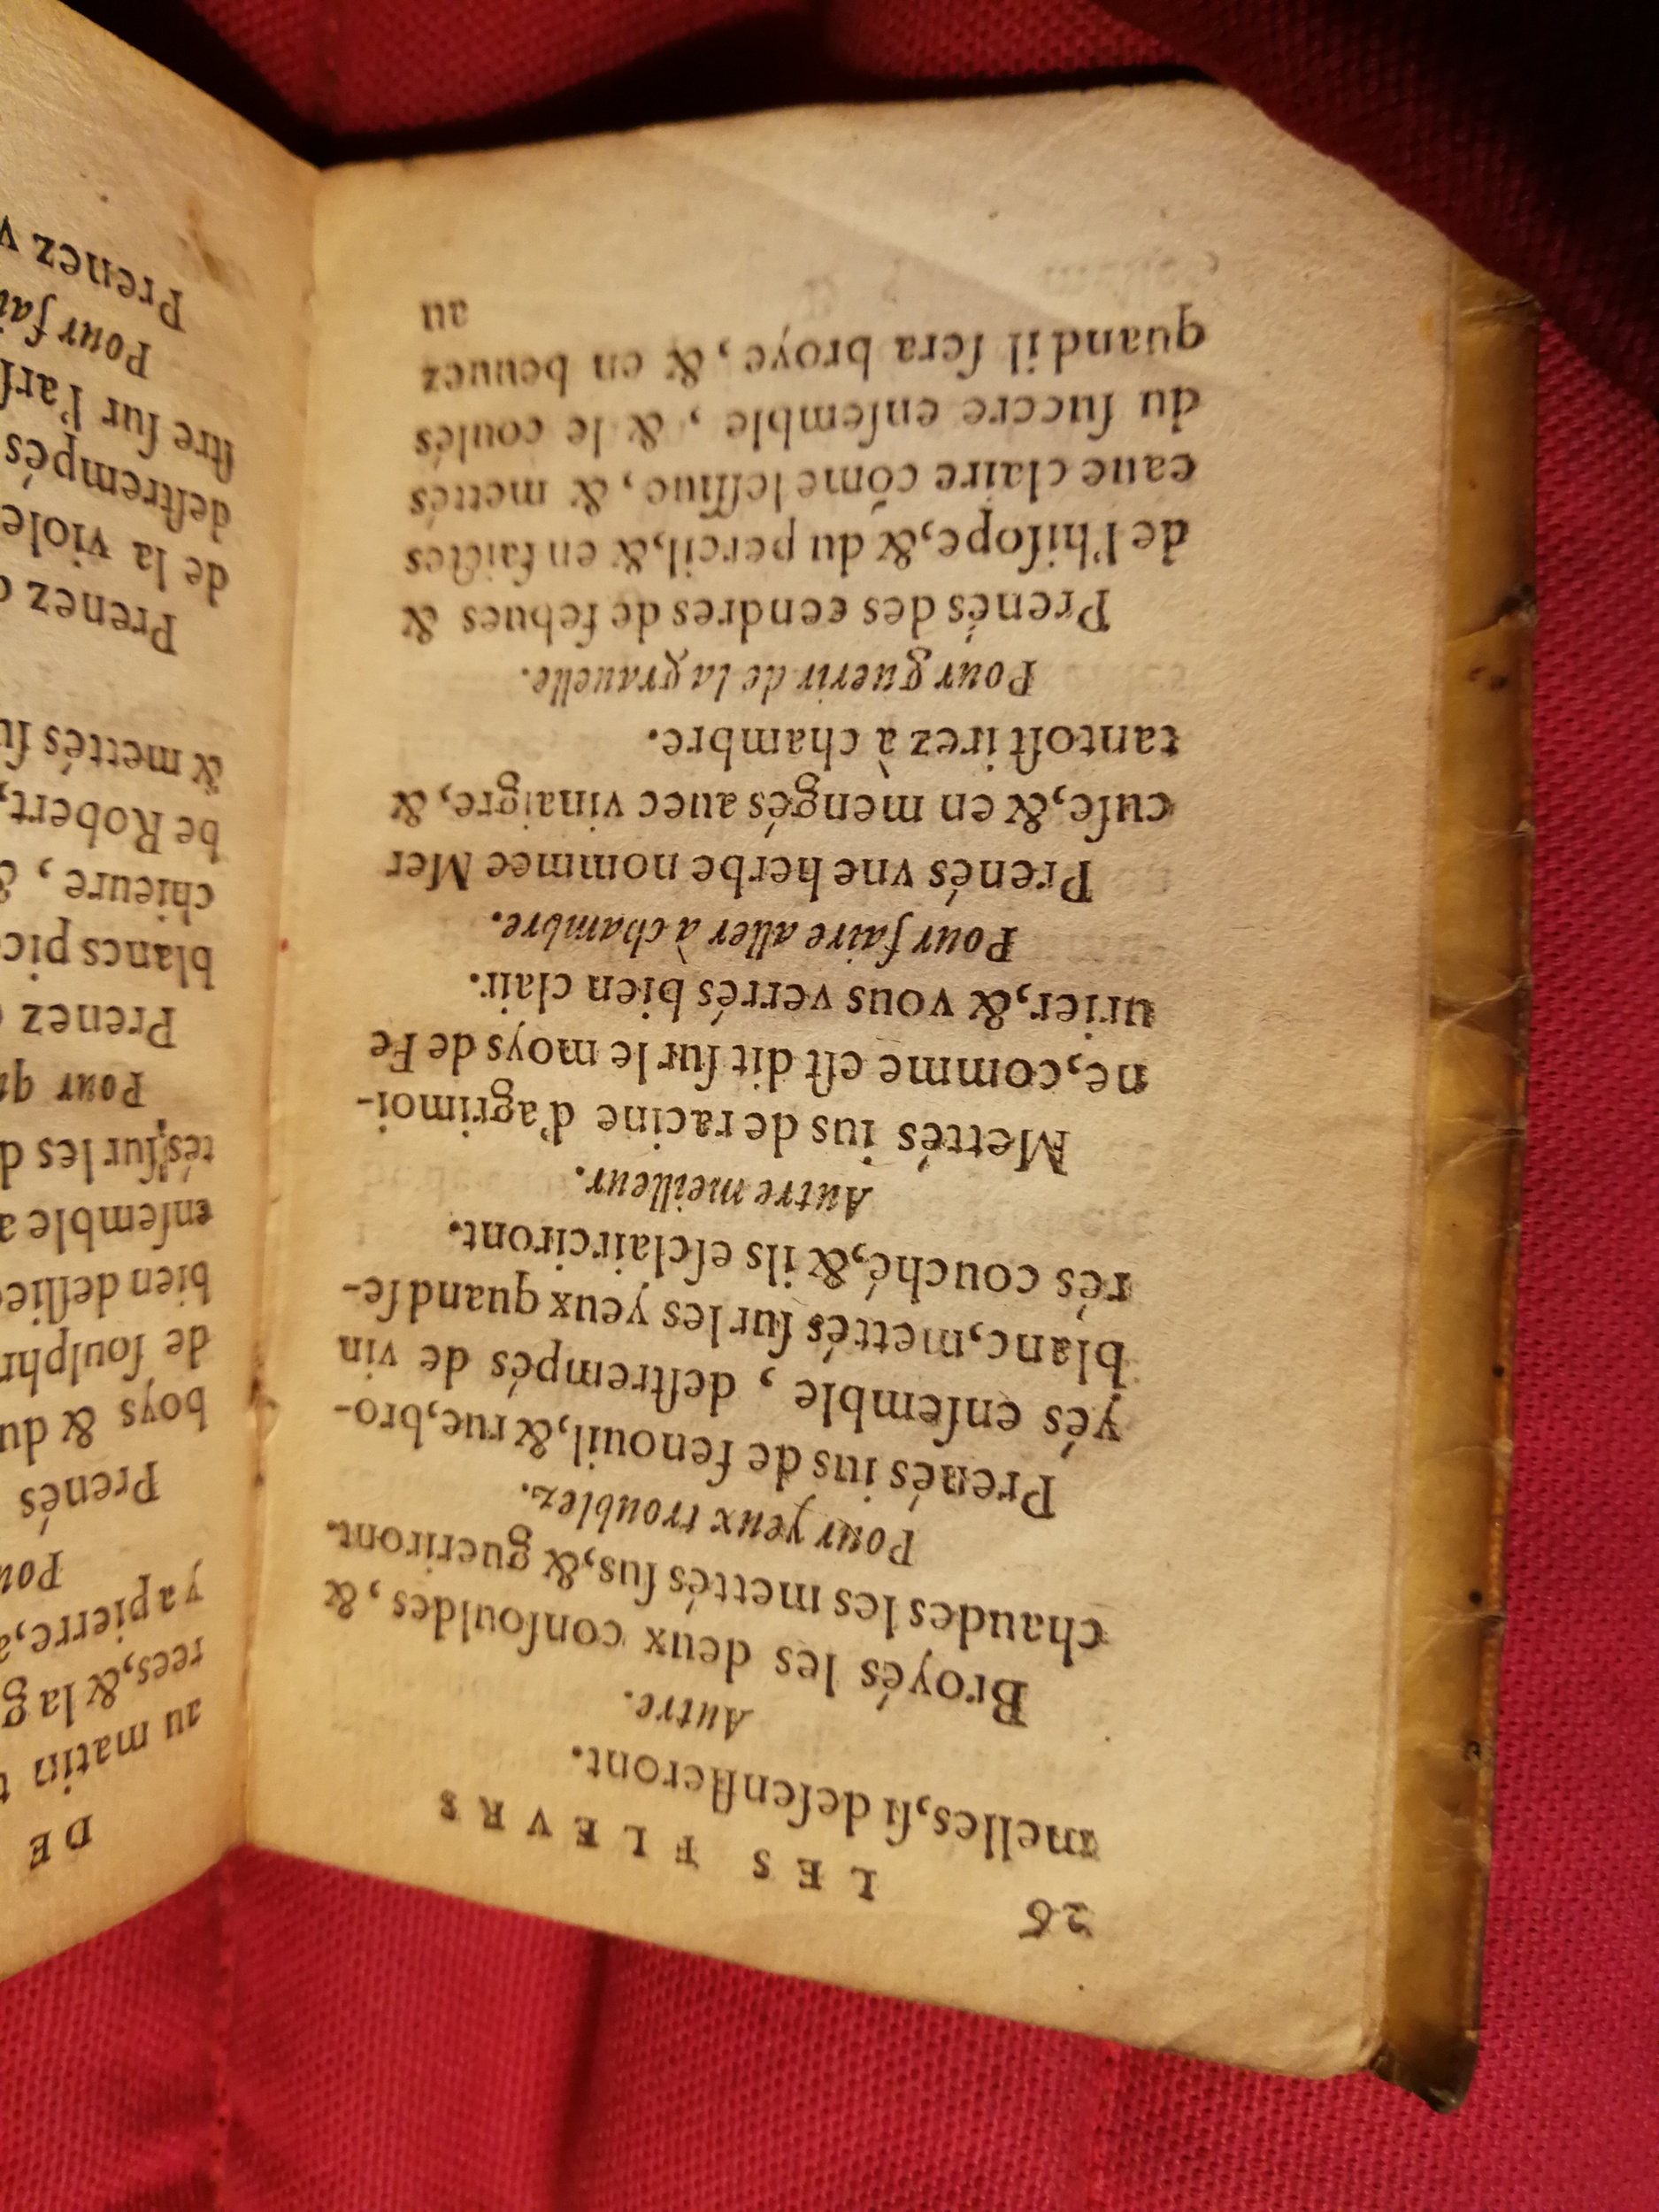 26 LES FLEVRS
melles,ſi deſenfleront.
Autre.
Broyés les deux conſouldes, &
chaudes les mettés ſus,& gueriront.
Pour yeux troublez.
Prenés ius de fenouil,& rue,bro-
yés enſemble , deſtrempés de vin
blanc,mettés ſur les yeux quand ſe-
rés couché,& ils eſclairciront.
Autre meilleur.
Mettés ius de racine d'agrimoi-
ne,comme eſt dit ſur le moys de Fe
urier,& vous verrés bien clair.
Pour faire aller à chambre.
Prenés vne herbe nommee Mer
cuſe,& en mengés auec vinaigre,&
tantoſt irez à chambre.
Pour guerir de la grauelle.
Prenés des cendres de febues &
de l'hiſope,& du percil,& en faictes
eaue claire cóme leſſiue, & mettés
du ſuccre enſemble , & le coulés
quand il ſera broye, & en beuuez
au
DE
au matin
rees,& la g
y a pierre,a
Pou
Prenés
boys & du
de ſoulphr
bien deſlie
enſemble a
tés ſur les d
Pour qu
Prenez
blancs pic
chieure , &
be Robert,
& mettés ſu
Prenez
de la viole
deſtrempés
ſtre ſur l'arſ
Pour fai
Prenez v